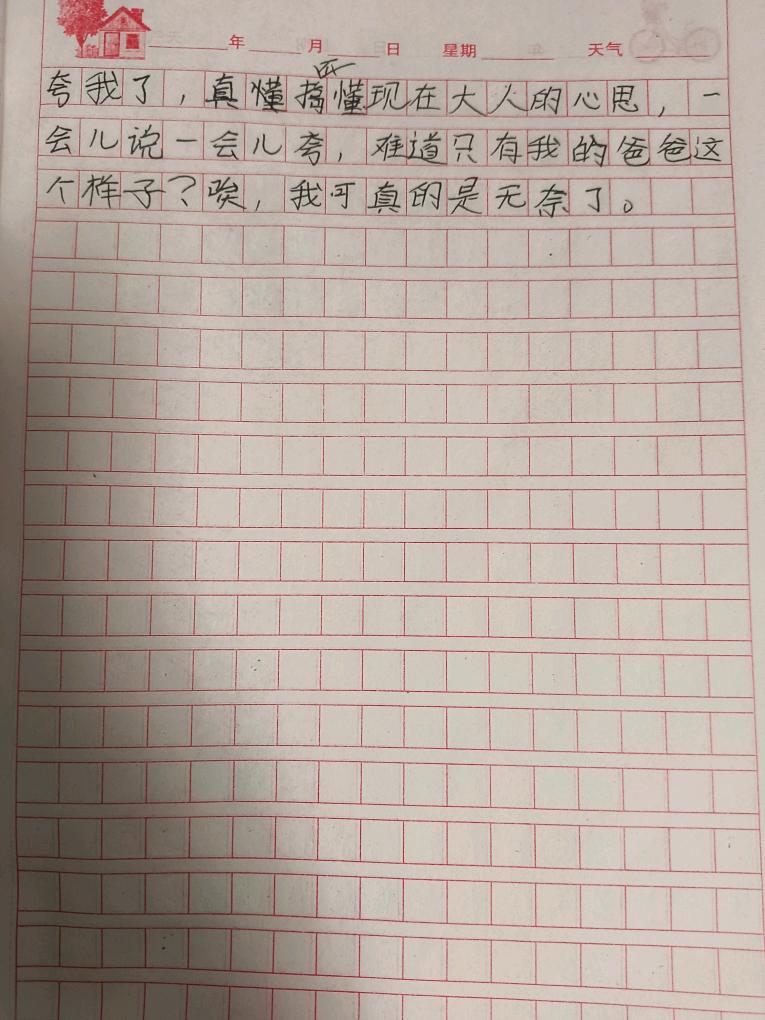 年 月 日 星期 天气
夸我了，真懂搞懂现在大人的心思，一
会儿说一会儿夸，难道只有我的爸爸这
个样子？唉，我可真的是无奈了。